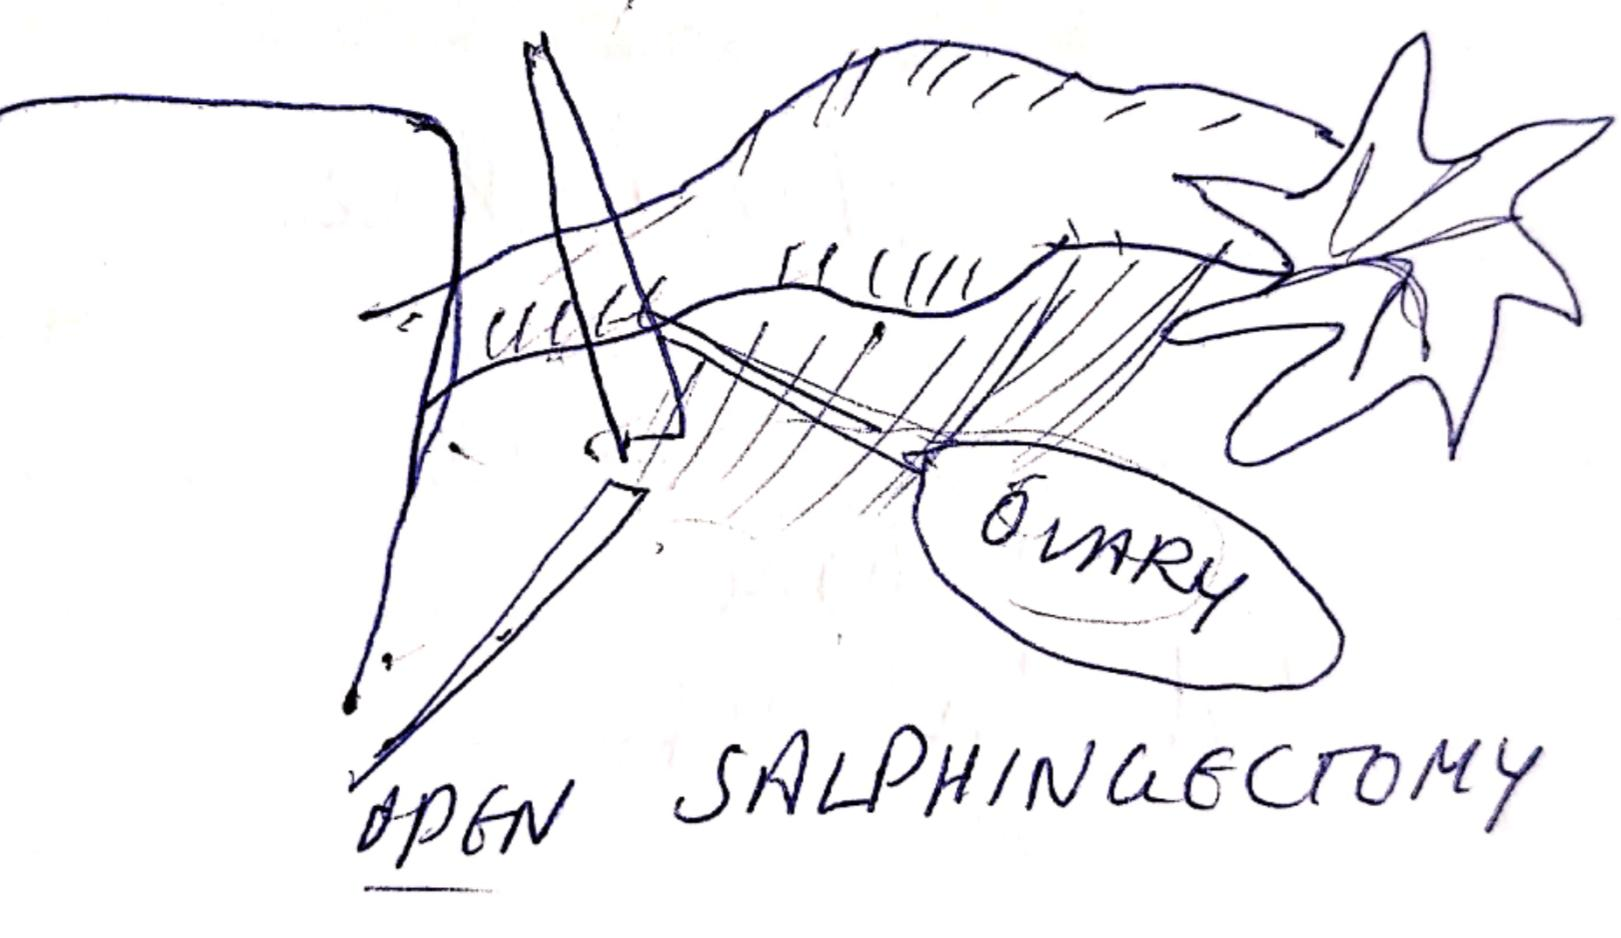 OVARY
OPEN SALPHINGECTOMY